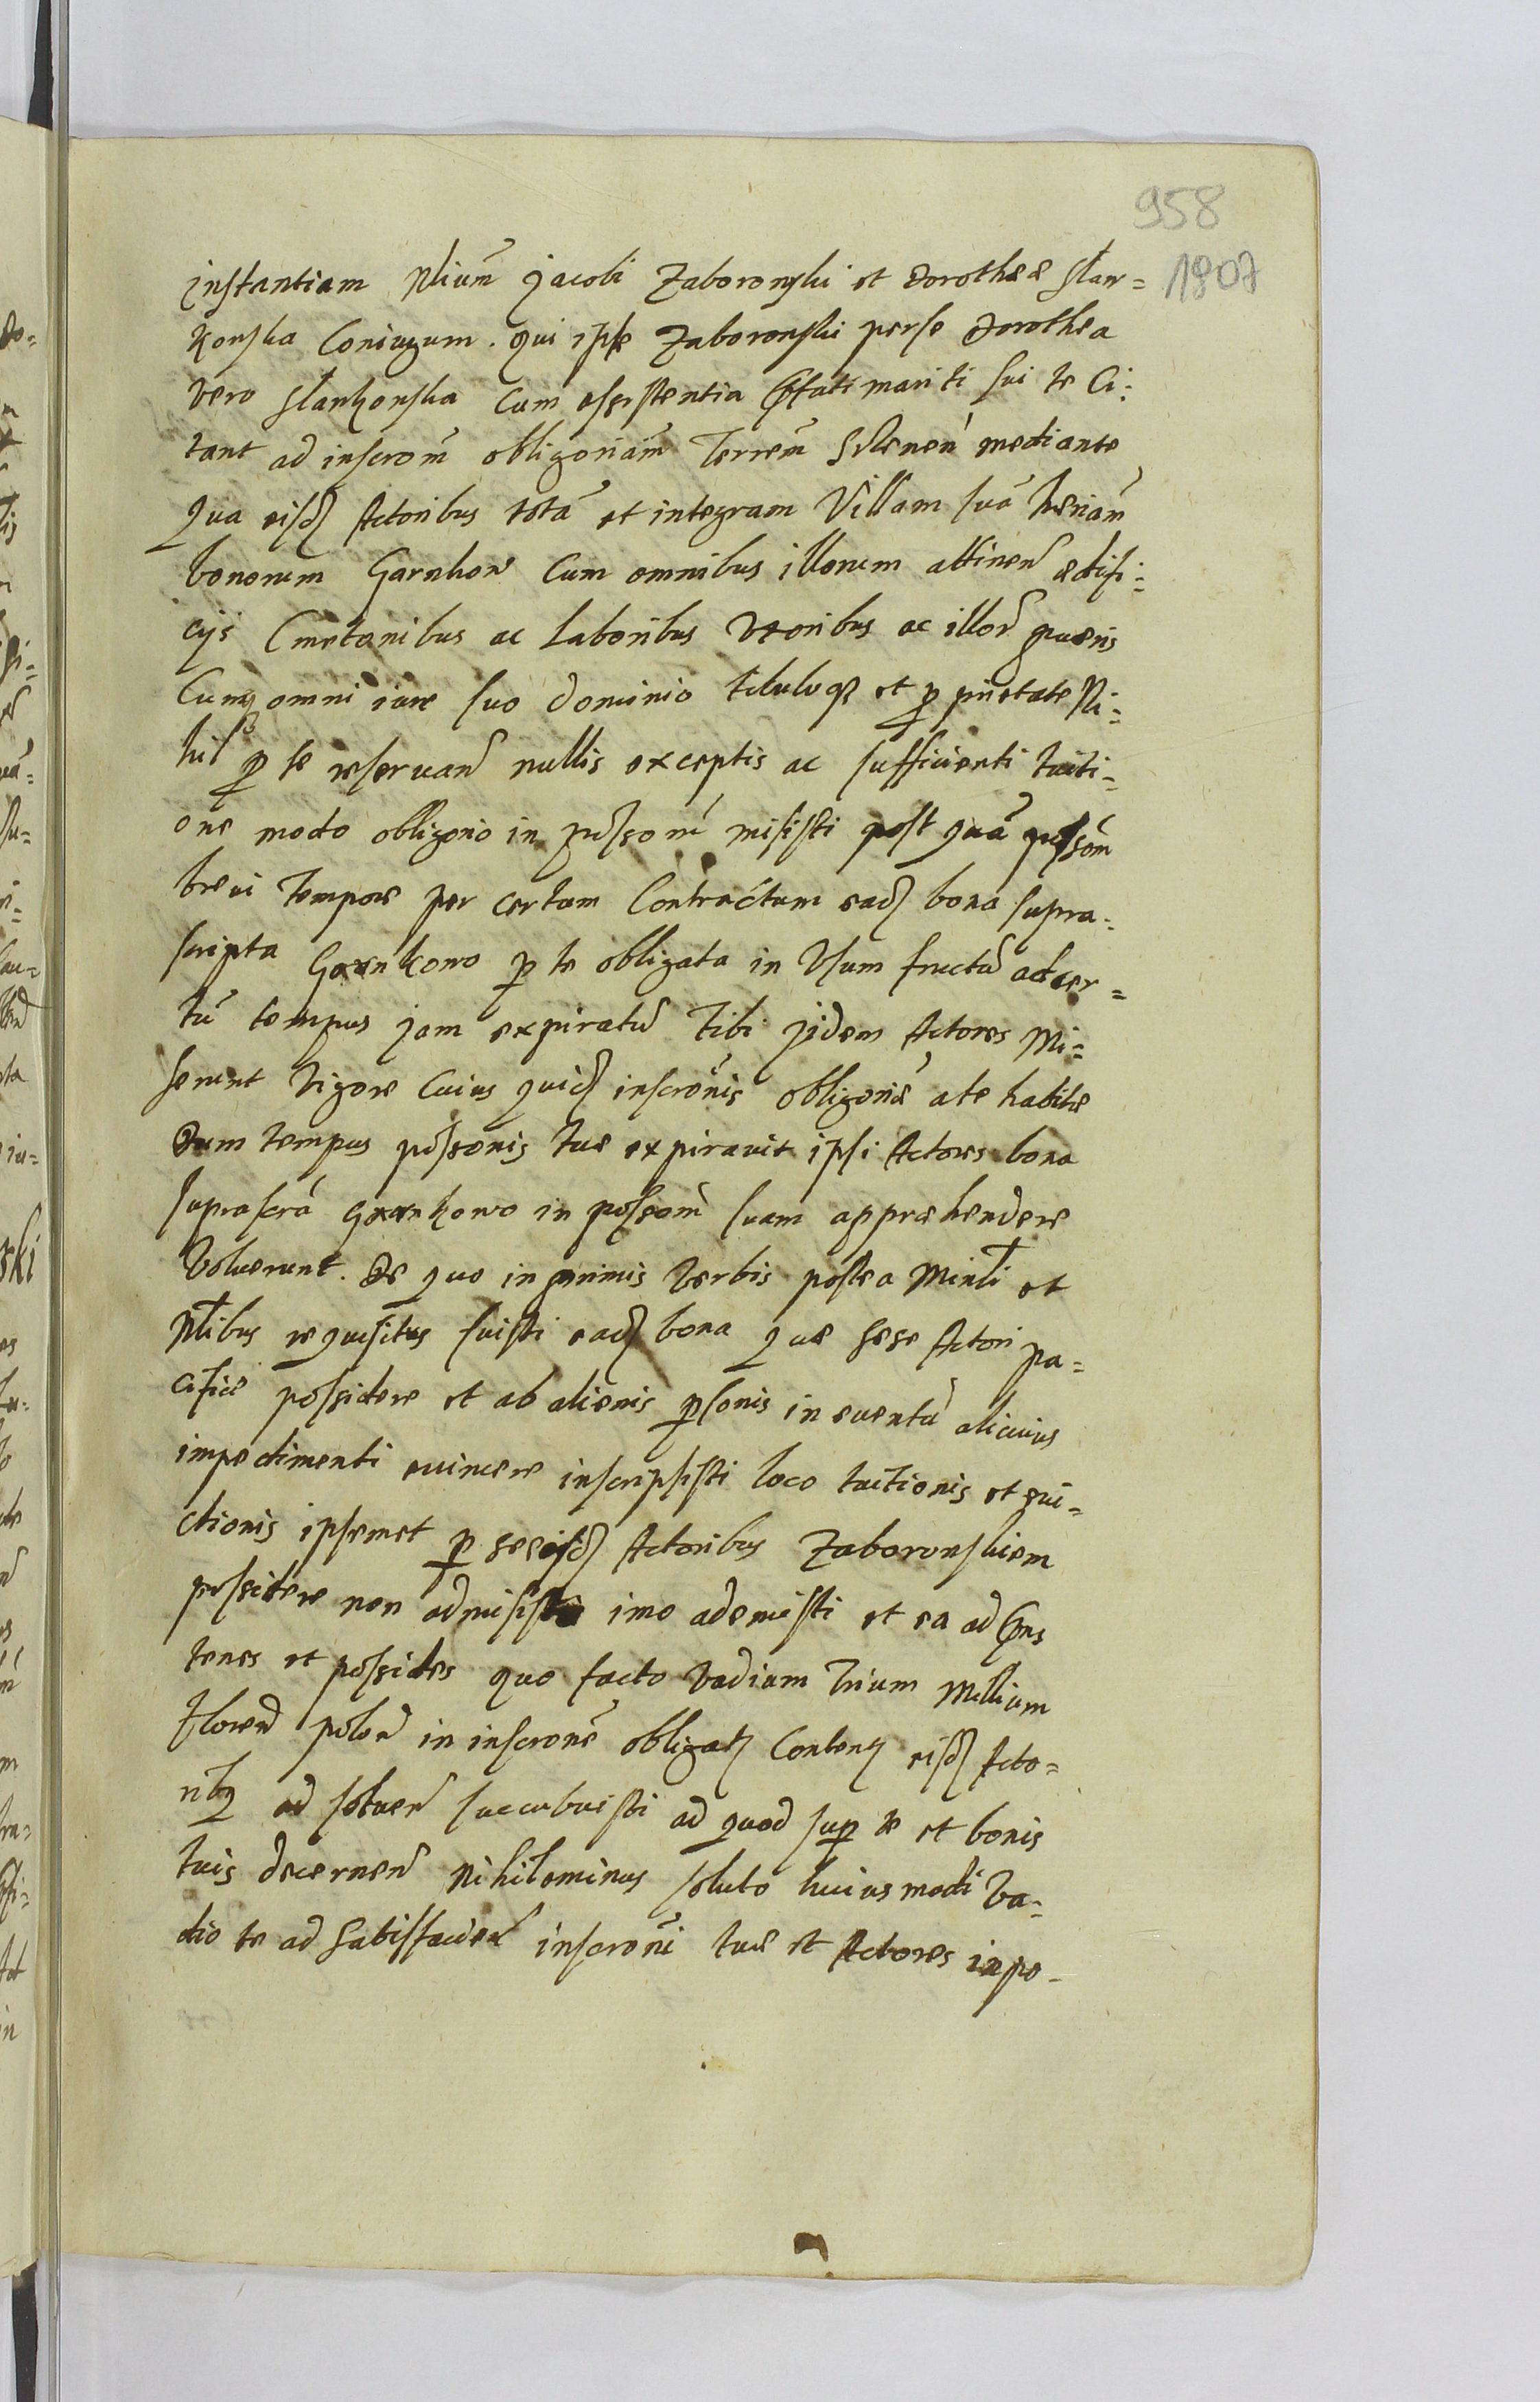 958
1907
instantiam Nlium Jacobi Zaboronski et Dorotheæ Stan=
konska Coniugum. qui ipse Zaboronski per se Dorothea
vero Stankonska Cum assistentia pfati mariti sui te Ci:
tant ad inscrom obligoriam Terrem mediante
Qua eisd Actoribus totā et integram Villam suā hæriam
bonorum Garnkow Cum omnibus illorum attinen ædifi:
cijs Cmetonibus ac Laboribus Uxoribus ac illor pueris
Cumq omni iure suo dominio tituloq et pprietate Ni:
hil p te reseruan nullis exceptis ac sufficienti tuiti-
one modo obligorio in possom misisti post quā possom
breui tempore per certum Contractum ead bona supra-
scripta Garnkowo p te obligata in Usum fructū ad cer=
tū tempus jam expiratū Tibi jidem Actores Mi=
serunt Vigore Cuius quid inscronis obligoriæ a te habitæ
Dum tempus possonis tuæ expirauit ipsi Actores bona
suprascrā Garnkowo in possom suam appræhendere
Voluerunt. De quo in primis Verbis postea Minli et
Nlibus requisitus fuisti ead bona quæ sese Actori pa=
cificè possidere et ab alienis psonis in euentū alicuius
impedimenti euincere inscripsisti loco tuitionis et eui-
ctionis ipsemet p se eisd Actoribus Zaboronskiem
possidere non admisisti imo ademisti et ea ad pns
tenes et possides quo facto Vadium Trium Millium
Floren polon in inscrone obligat Conten eisd Acto=
ribq ad soluen succubuisti ad quod sup te et bonis
tuis decernen Nihilominus soluto huiusmodi Va-
dio te ad satisfacien inscroni tuæ et Actores in po-